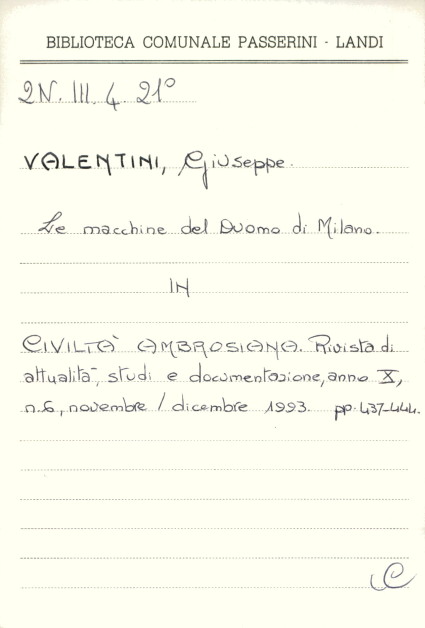 BIBLIOTECA COMUNALE PASSERINI - LANDI
2N. III. 4. 21°
VALENTINI, Giuseppe.
Le macchine del Duomo di Milano.
IN
CIVILTA' AMBROSIANA. Rivista di
attualità, studi e documentazione, anno X,
n.6, novembre / dicembre 1993. pp. 437-444.
C